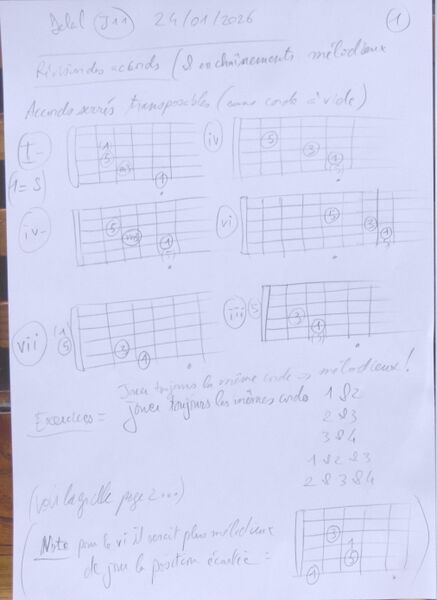 J11 24/01/2026 1
Révision des accords (& enchaînements mélodieux
Accords serrés transposables (sans corde à vide)
I-
1 5 m3 1
iv
5 3 1
1 = 5
iv-
5 m3 1
vi
5 3 1
vii
1 5 3 1
iii
5 3 1
Jouer toujours la même corde => mélodieux!
Exercices = jouer toujours les mêmes cordes 1 & 2
2 & 3
3 & 4
1 & 2 & 3
2 & 3 & 4
(voir la grille page 2...)
(Note pour le vi il serait plus mélodieux
de jouer la position écartée =
3 1 5 1